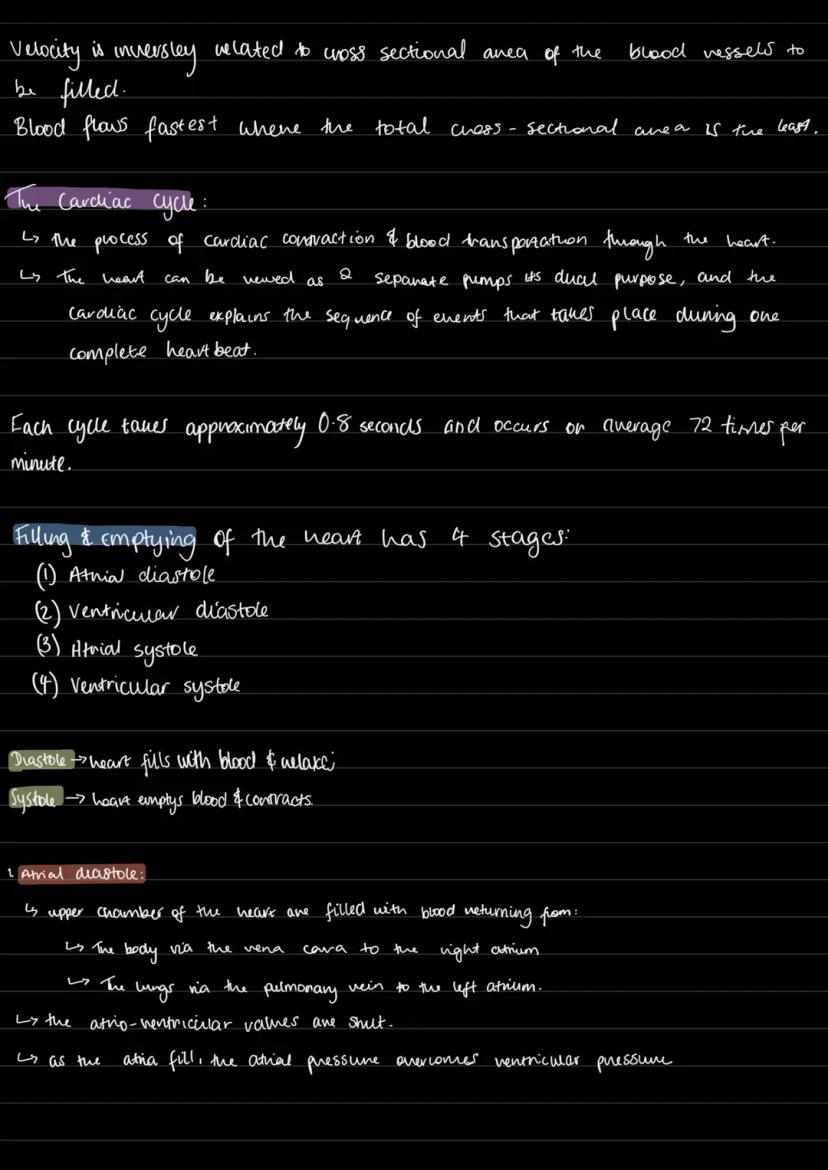 Velocity is inversley related to cross sectional area of the blood vessels to
be filled.
Blood flows fastest where the total cross-sectional area is the least.
The Cardiac Cycle:
↳ the process of cardiac contraction & blood transportation through the heart.
↳ The heart can be viewed as 2 separate pumps its dual purpose, and the
cardiac cycle explains the sequence of events that takes place during one
complete heartbeat.
Each cycle takes approximately 0.8 seconds and occurs on average 72 times per
minute.
Filling & emptying of the heart has 4 stages:
(1) Atrial diastole
(2) Ventricular diastole
(3) Atrial systole
(4) Ventricular systole
Diastole → heart fills with blood & relaxes
Systole → heart emptys blood & contracts
1. Atrial diastole:
↳ upper chamber of the heart are filled with blood returning from:
↳ The body via the vena cava to the right atrium
↳ The lungs via the pulmonary vein to the left atrium.
↳ the atrio-ventricular valves are shut.
↳ as the atria fill, the atrial pressure overcomes ventricular pressure